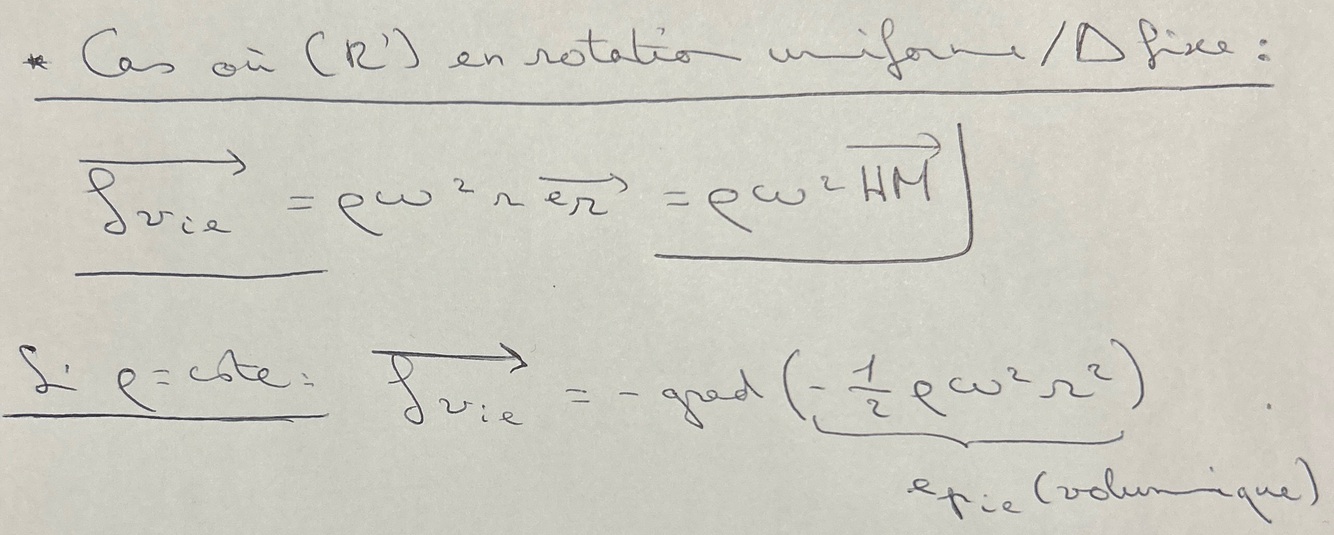 * Cas où (R') en rotation uniforme / Δ fixe :
f⃗vie = ρω² r e⃗r = ρω² HM⃗
Si ρ = cste : f⃗vie = - grad (- 1/2 ρω² r²)
epie (volumique)